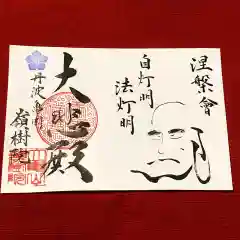 涅槃會
自灯明
法灯明
大悲殿
丹波亀岡
嶺樹院